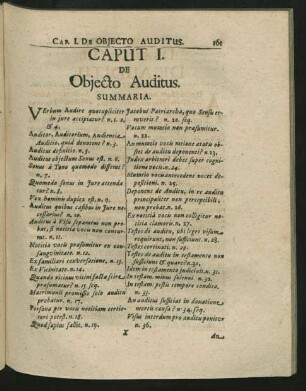 CAP. I. DE OBJECTO AUDITUS. 161
CAPUT I.
DE
Objecto Auditus.
SUMMARIA.
VErbum Audire quotupliciter
in jure accipiatur? n. 1. 2.
& 4.
Auditor, Auditorium, Audientia
Auditio, quid denotent? n. 3.
Auditus definitio. n. 5.
Auditus objectum Sonus est. n. 6.
Sonus à Tono quomodo differat?
n. 7.
Quomodo sonus in Jure attenda-
tur? n. 8.
Vox hominis duplex est. n. 9.
Auditus quibus casibus in Jure ne-
cessarius? n. 10.
Auditu à Visu separatus non pro-
bat, si notitia vocis non concur-
rat. n. 11.
Notitia vocis præsumitur ex con-
sanguinitate. n. 12.
Ex familiari conversatione. n. 13.
Ex Vicinitate. n. 14.
Quando ex sono vicini falsa
præsumatur? n. 15. seq.
Matrimonii promissio solo auditu
probatur. n. 17.
Persona per vocis notitiam certio-
rari potest. n. 18.
Quod sæpius fallit. n. 19.
Jacobus Patriarcha, quo Sensu er-
raverit? n. 20. seq.
Vocum mutatio non præsumitur.
n. 22.
An mutatio vocis notitia
de auditu deponenti? n. 23.
Judex arbitrari debet super cogni-
tione vocis. 24.
depositioni. n. 25.
Deponens de Auditu, in re auditu
principaliter non perceptibili,
non probat. n. 26.
Ex notitia vocis non colligitur no-
titia clamoris. n. 27.
Testes de auditu, ubi leges visum
requirunt, non sufficiunt. n. 28.
Testes certiorati. n. 29.
Testes de auditu in testamento non
sufficiunt & quare? n. 30.
Idem in testamento judiciali. n. 31.
In testam. metu soleni n. 32.
In testam. pestis tempore condito.
n. 33.
An auditus sufficiat in donatione
mortis causa? n. 34. seq.
Visus interdum pro auditu ponitur
n. 36.
X